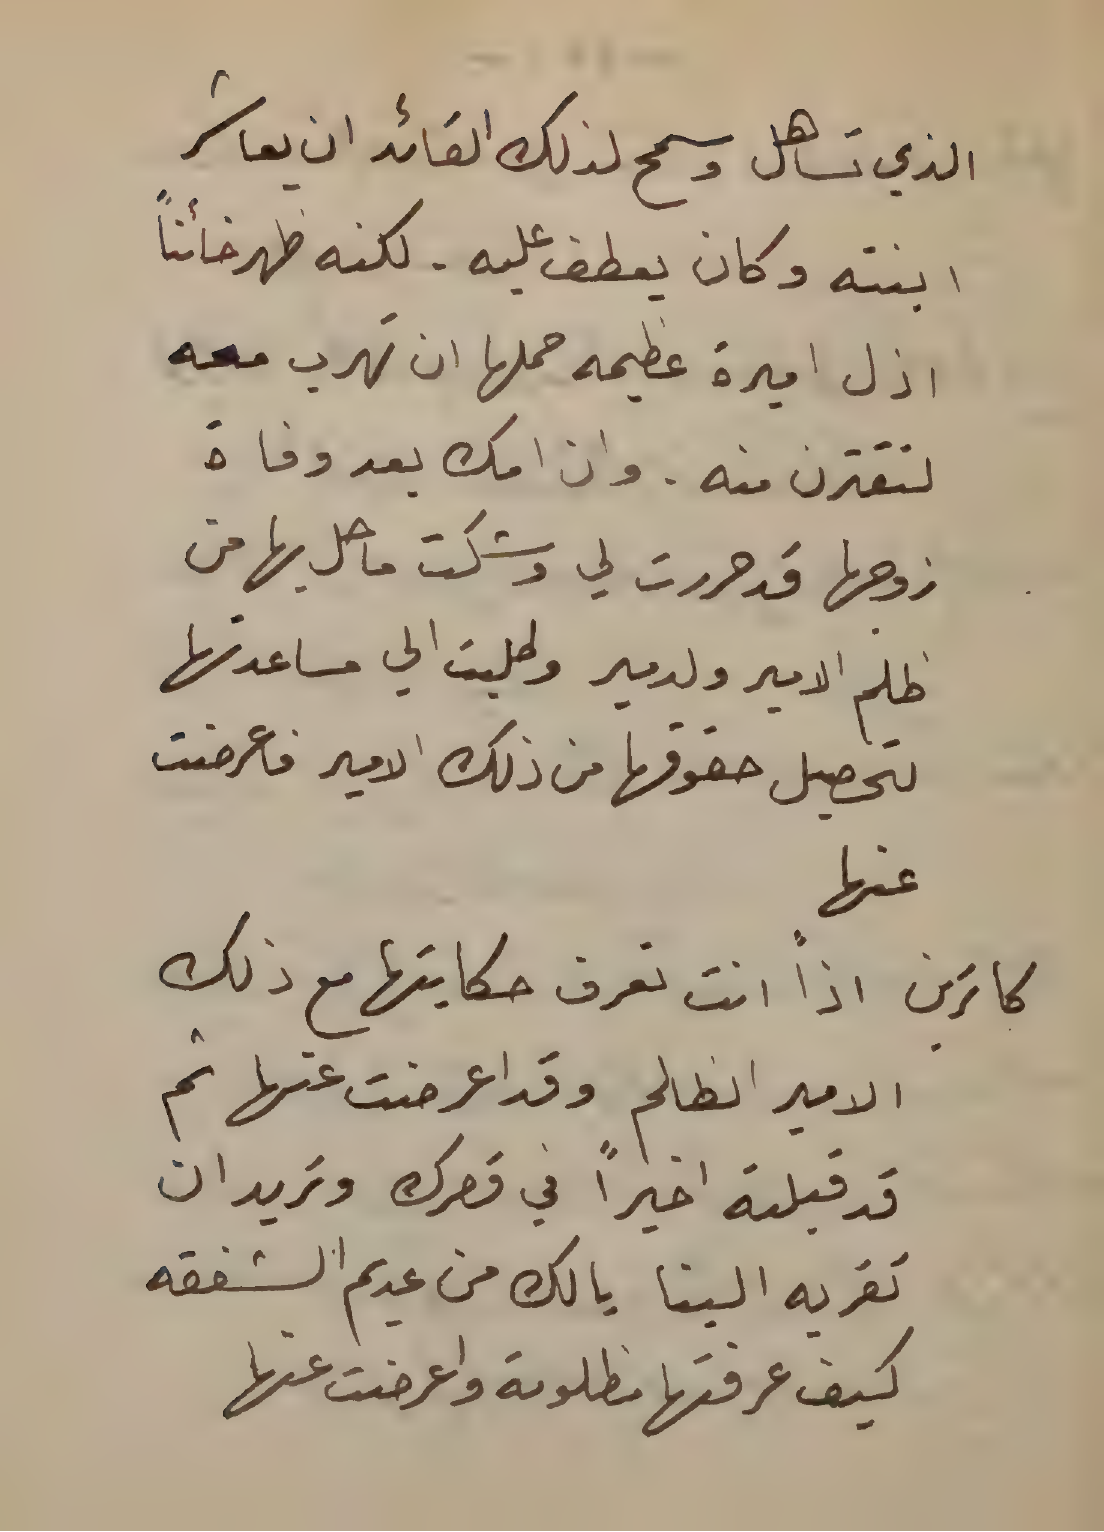 الذي تساهل وسمح لذلك القائد ان يعاشر
ابنته وكان يعطف عليه . لكنه ظهر خائناً
اذل اميرة عظيمه حملها ان تهرب معه
لتقترن منه . وان امك بعد وفاة
زوجها قد حررت لي وشكت ما حل بها من
ظلم الامير ولدمير وطلبت الي مساعدتها
لتحصيل حقوقها من ذلك الامير فاعرضت
عنها
كاترين اذاً انت تعرف حكايتها مع ذلك
الامير الظالم وقد اعرضت عنها ثم
قد قبلته اخيراً في قصرك وتريد ان
تقربه الينا يالك من عديم الشفقه
كيف عرفتها مظلومة واعرضت عنها